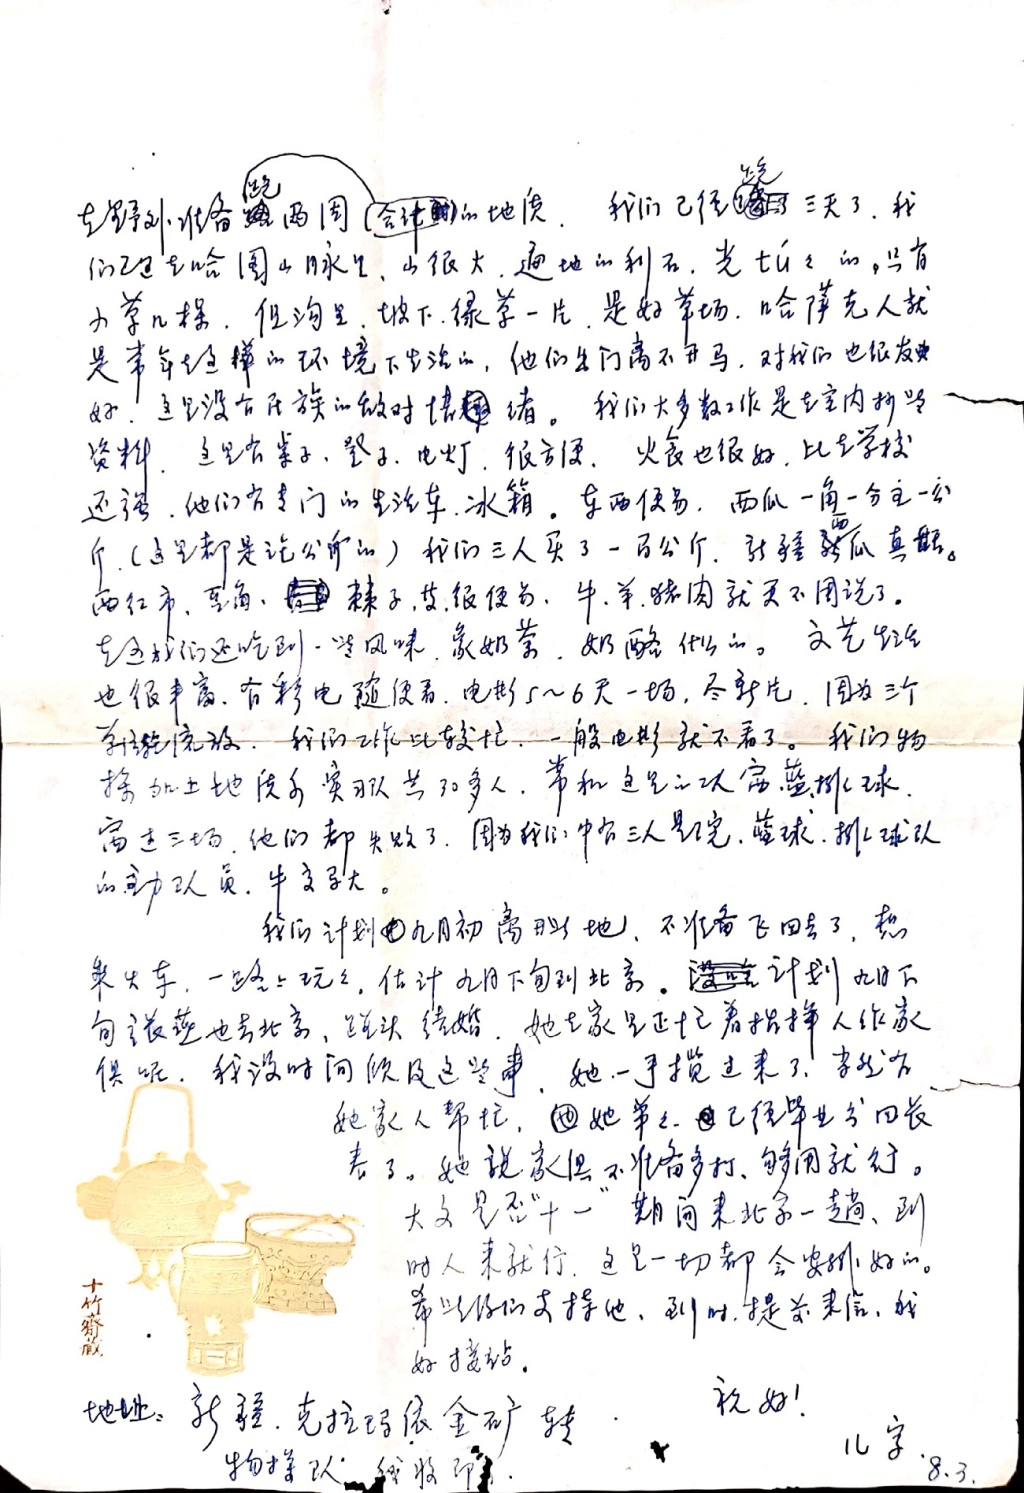 在野外准备跑两周(合计)的地质. 我们已经跑了三天了.我
们已进在哈图山脉里.山很大.遍地的利石.光秃々的。只有
小草几棵.但沟里.坡下.绿草一片.是好草场.哈萨克人就
是常年在这样的环境下生活的.他们出门离不开马.对我们也很友
好.这里没有民族的敌对情绪。 我们大多数工作是在室内抄些
资料.这里有桌子、登子、电灯.很方便. 火食也很好.比在学校
还强.他们有专门的生活车.冰箱。东西便易.西瓜一角一分 一公
斤.(这里都是论公斤的)我们三人买了一百公斤.新疆西瓜真甜。
西红市、豆角、 棘子.也很便易.牛、羊、猪肉就更不用说了。
在这我们还吃到一些风味.象奶茶.奶酪什么的。 文艺生活
也很丰富.有彩电随便看.电影5~6天一场.尽新片.因为三个
单位 流放. 我们工作比较忙.一般电影就不看了。我们物
探加上地质系实习队共30多人.常和这里的 队赛蓝、排球.
赛过三场.他们都失败了.因为我们中有三人是院.蓝球.排球队
的主力队员.牛高马大。
我们计划九月初离开此地.不准备飞回去了.想
乘火车.一路上玩々.估计九月下旬到北京。 计划九月下
旬 燕也去北京. 结婚.她在家里正忙着指挥人作家
俱呢.我没时间顾及这些事.她一手揽过来了.当然有
她家人帮忙.她弟々已经毕业分回长
春了。她说家俱不准备多打、够用就行。
大文是否“十一”期间来北京一趟、到
时人来就行.这里一切都会安排好的。
希望你们支持他、到时.提前来信、我
好接站。
祝好!
地址:新疆.克拉玛依金矿转
物探队 我收即可.
儿字.
8.3.
十竹齋藏